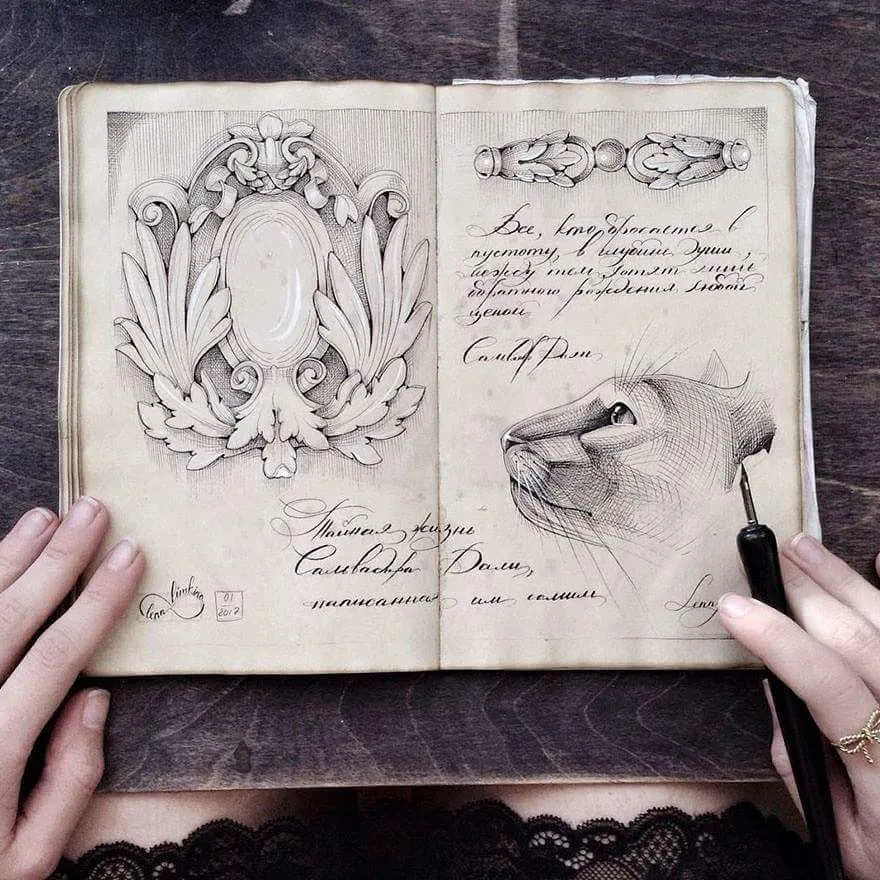 Тайная жизнь
Сальвадора Дали,
написанная им самим
lena limkina
01
2017
Все, кто бросается в
пустоту, в глубине души,
между тем хотят лишь
обратного рождения любой
ценой
Сальвадор Дали